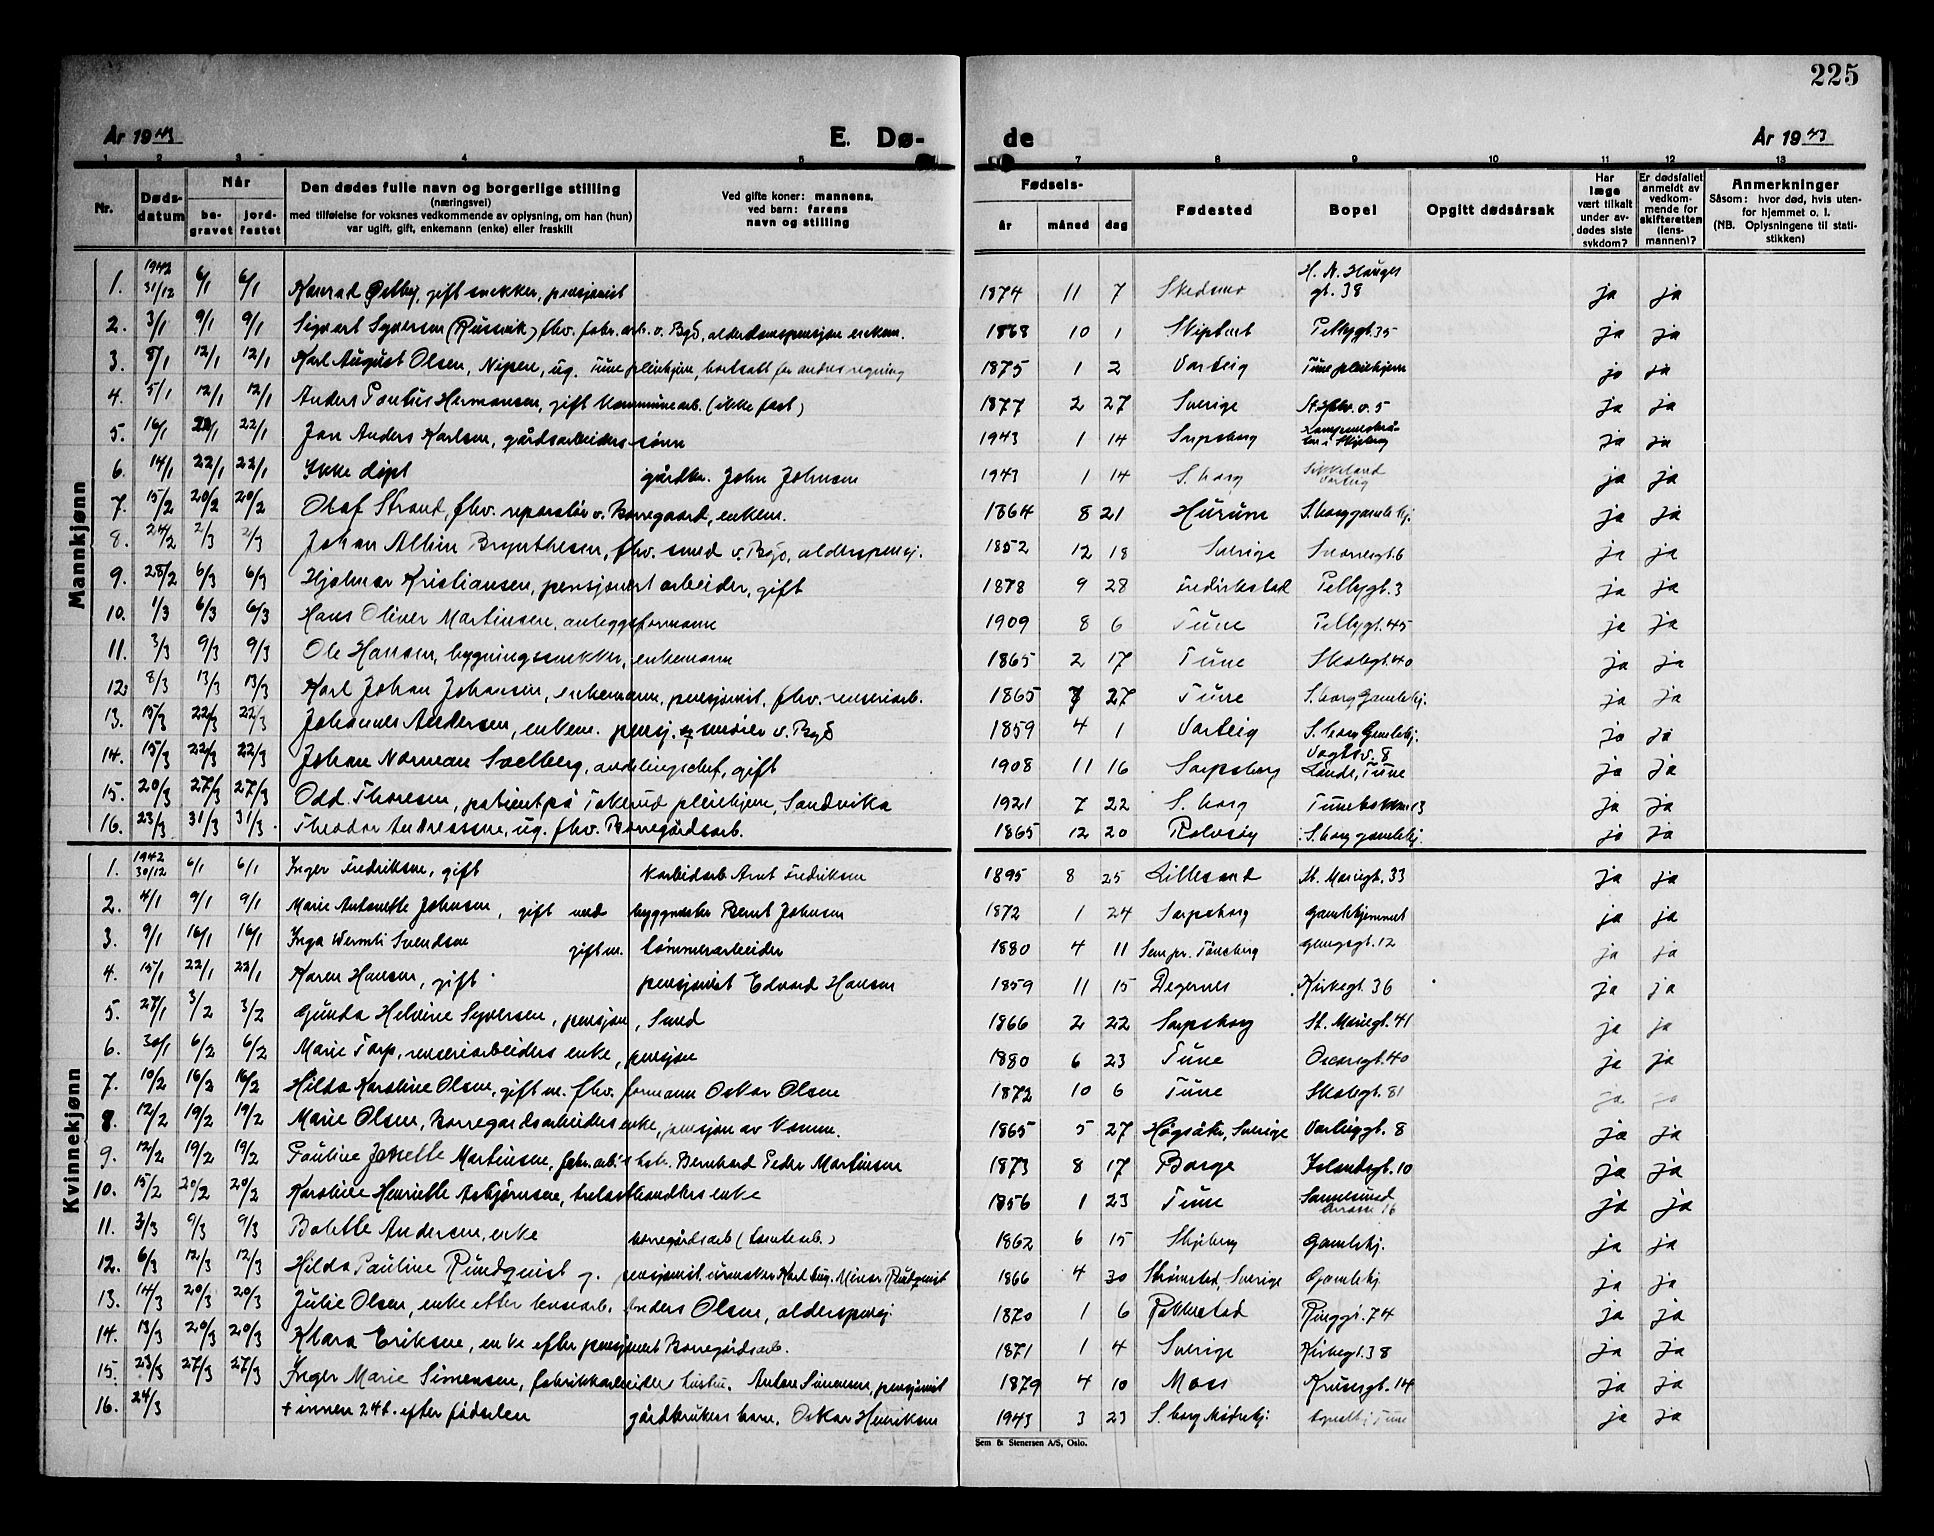 225
År 1943 E. Dø- de År 1943
1 2 3 4 5 7 8 9 10 11 12 13
Nr. Dødsdatum Når begravet jordfestet Den dødes fulle navn og borgerlige stilling (næringsvei) med tilføielse for voksnes vedkommende av oplysning, om han (hun) var ugift, gift, enkemann (enke) eller fraskilt Ved gifte koner: mannens, ved barn: farens navn og stilling Fødsels- år måned dag Fødested Bopel Opgitt dødsårsak Har læge vært tilkalt under avdødes siste sykdom? Er dødsfallet anmeldt av vedkommende for skifteretten (lensmannen)? Anmerkninger Såsom: hvor død, hvis utenfor hjemmet o. l. (NB. Oplysningene til statistikken)
Mannkjønn
1. 1942 31/12 6/1 6/1 Konrad Østby, gift snekker, pensjonist 1874 11 7 Skedsmo H. N. Hauges gt. 38 ja ja
2. 3/1 9/1 9/1 Sigvart Syversen (Rusvik) fhv. fabr. arb. v. Bgd, alderdomspensjon enkem. 1868 10 1 Skiptvet Pellygt. 35 ja ja
3. 8/1 12/1 12/1 Karl August Olsen, Nipen, ug. Tune pleiehjem, bortsatt for annens regning 1875 1 2 Varteig Tune pleiehjem ja ja
4. 5/1 12/1 12/1 Anders Pontus Hermansen, gift kommunearb. (ikke fast) 1877 2 27 Sverige v. 5 ja ja
5. 16/1 22/1 22/1 Jan Anders Karlsen, gårdsarbeiders sønn 1943 1 14 Sarpsborg i Skjeberg ja ja
6. 14/1 22/1 22/1 Ikke døpt gårdbr. John Johnsen 1943 1 14 S.borg Varteig ja ja
7. 15/2 20/2 20/2 Olaf Strand, fhv. reparatør v. Borregaard, enkem. 1864 8 21 Hurum S.borg gamlehj. ja ja
8. 24/2 2/3 2/3 Johan Albin Brynthesen, fhv. smed v. Bgd, alderspensj. 1852 12 18 Sverige Snorresgt. 6 ja ja
9. 28/2 6/3 6/3 Hjalmar Kristiansen, pensjonert arbeider, gift 1878 9 28 Fredrikstad Pellygt. 3 ja ja
10. 1/3 6/3 6/3 Hans Oliver Martinsen, anleggsformann 1909 8 6 Tune Pellygt. 45 ja ja
11. 3/3 9/3 9/3 Ole Hansen, bygningssnekker, enkemann 1865 2 17 Tune Skolegt. 40 ja ja
12. 8/3 13/3 13/3 Karl Johan Johansen, enkemann, pensjonist, fhv. renseriarb. 1865 7 27 Tune S.borg Gamlehj. ja ja
13. 15/3 22/3 22/3 Johannes Andersen, enkem. pensj. smører v. Bgd 1859 4 1 Varteig S.borg Gamlehj. ja ja
14. 15/3 22/3 22/3 Johan Norman Solberg, avdelingschef, gift 1908 11 16 Sarpsborg Vogtsv. 8 Lande, Tune ja ja
15. 20/3 27/3 27/3 Odd Thoresen, patient på Tokerud pleiehjem, Sandvika 1921 7 22 S.borg Tunebakken 13 ja ja
16. 23/3 31/3 31/3 Theodor Andreassen, ug. fhv. Borregårdsarb. 1865 12 20 Rolvsøy S.borg gamlehj. ja ja
Kvinnekjønn
1. 1942 30/12 6/1 6/1 Inger Fredriksen, gift karbidarb Arnt Fredriksen 1895 8 25 Lillesand St. Mariegt. 33 ja ja
2. 4/1 9/1 9/1 Marie Antonette Johnsen, gift med byggmester Bernt Johnsen 1872 1 24 Sarpsborg Gamlehjemmet ja ja
3. 9/1 16/1 16/1 Inga Wermli Svendsen gift m. tømmerarbeider 1880 4 11 Sem pr. Tønsberg gt. 12 ja ja
4. 15/1 22/1 22/1 Karen Hansen, gift pensjonist Edvard Hansen 1859 11 15 Degernes Kirkegt. 36 ja ja
5. 27/1 3/2 3/2 Gunda Helvine Syversen, pensjon, Smed 1866 2 22 Sarpsborg St. Mariegt. 41 ja ja
6. 30/1 6/2 6/2 Marie Torp, renseriarbeiders enke, pensjon 1880 6 23 Tune Oscarsgt. 40 ja ja
7. 10/2 16/2 16/2 Hilda Karoline Olsen, gift m. fhv. formann Oskar Olsen 1872 10 6 Tune Skolegt. 81 ja ja
8. 12/2 19/2 19/2 Marie Olsen, Borregardsarbeiders enke, pensjon av komm. 1865 5 27 Högsäter, Sverige Varteiggt. 8 ja ja
9. 12/2 19/2 19/2 Pauline Jenette Martinsen, fabr. arb.'s hstr. Bernhard Peder Martinsen 1873 8 17 Borge Islandsgt. 10 ja ja
10. 15/2 20/2 20/2 Karoline Henriette Asbjørnsen, trelasthandlers enke 1856 1 23 Tune Sannesund terrasse 16 ja ja
11. 3/3 9/3 9/3 Bolette Andersen, enke borregårdsarb (tomtearb.) 1862 6 15 Skjeberg Gamlehj. ja ja
12. 6/3 12/3 12/3 Hilda Pauline Rundquist g. pensjonist urmaker Karl Aug. Rundquist 1866 4 30 Strømstad, Sverige Gamlehj. ja ja
13. 14/3 20/3 20/3 Julie Olsen, enke efter lensearb. Anders Olsen, alderspensj 1870 1 6 Rakkestad Ringgt. 74 ja ja
14. 13/3 20/3 20/3 Klara Eriksen, enke efter pensjonert Borregårdsarb. 1871 1 4 Sverige Kirkegt. 38 ja ja
15. 23/3 27/3 27/3 Inger Marie Simensen, fabrikkarbeiders hustru. Anton Simensen, pensjonist 1879 4 10 Moss Krusesgt. 14 ja ja
16. 24/3 + innen 24 t. efter fødselen gårdbrukers barn, Oskar Henriksen 1943 3 23 S.borg Mødrehj. Tune ja ja
Sem & Stenersen A/S, Oslo.